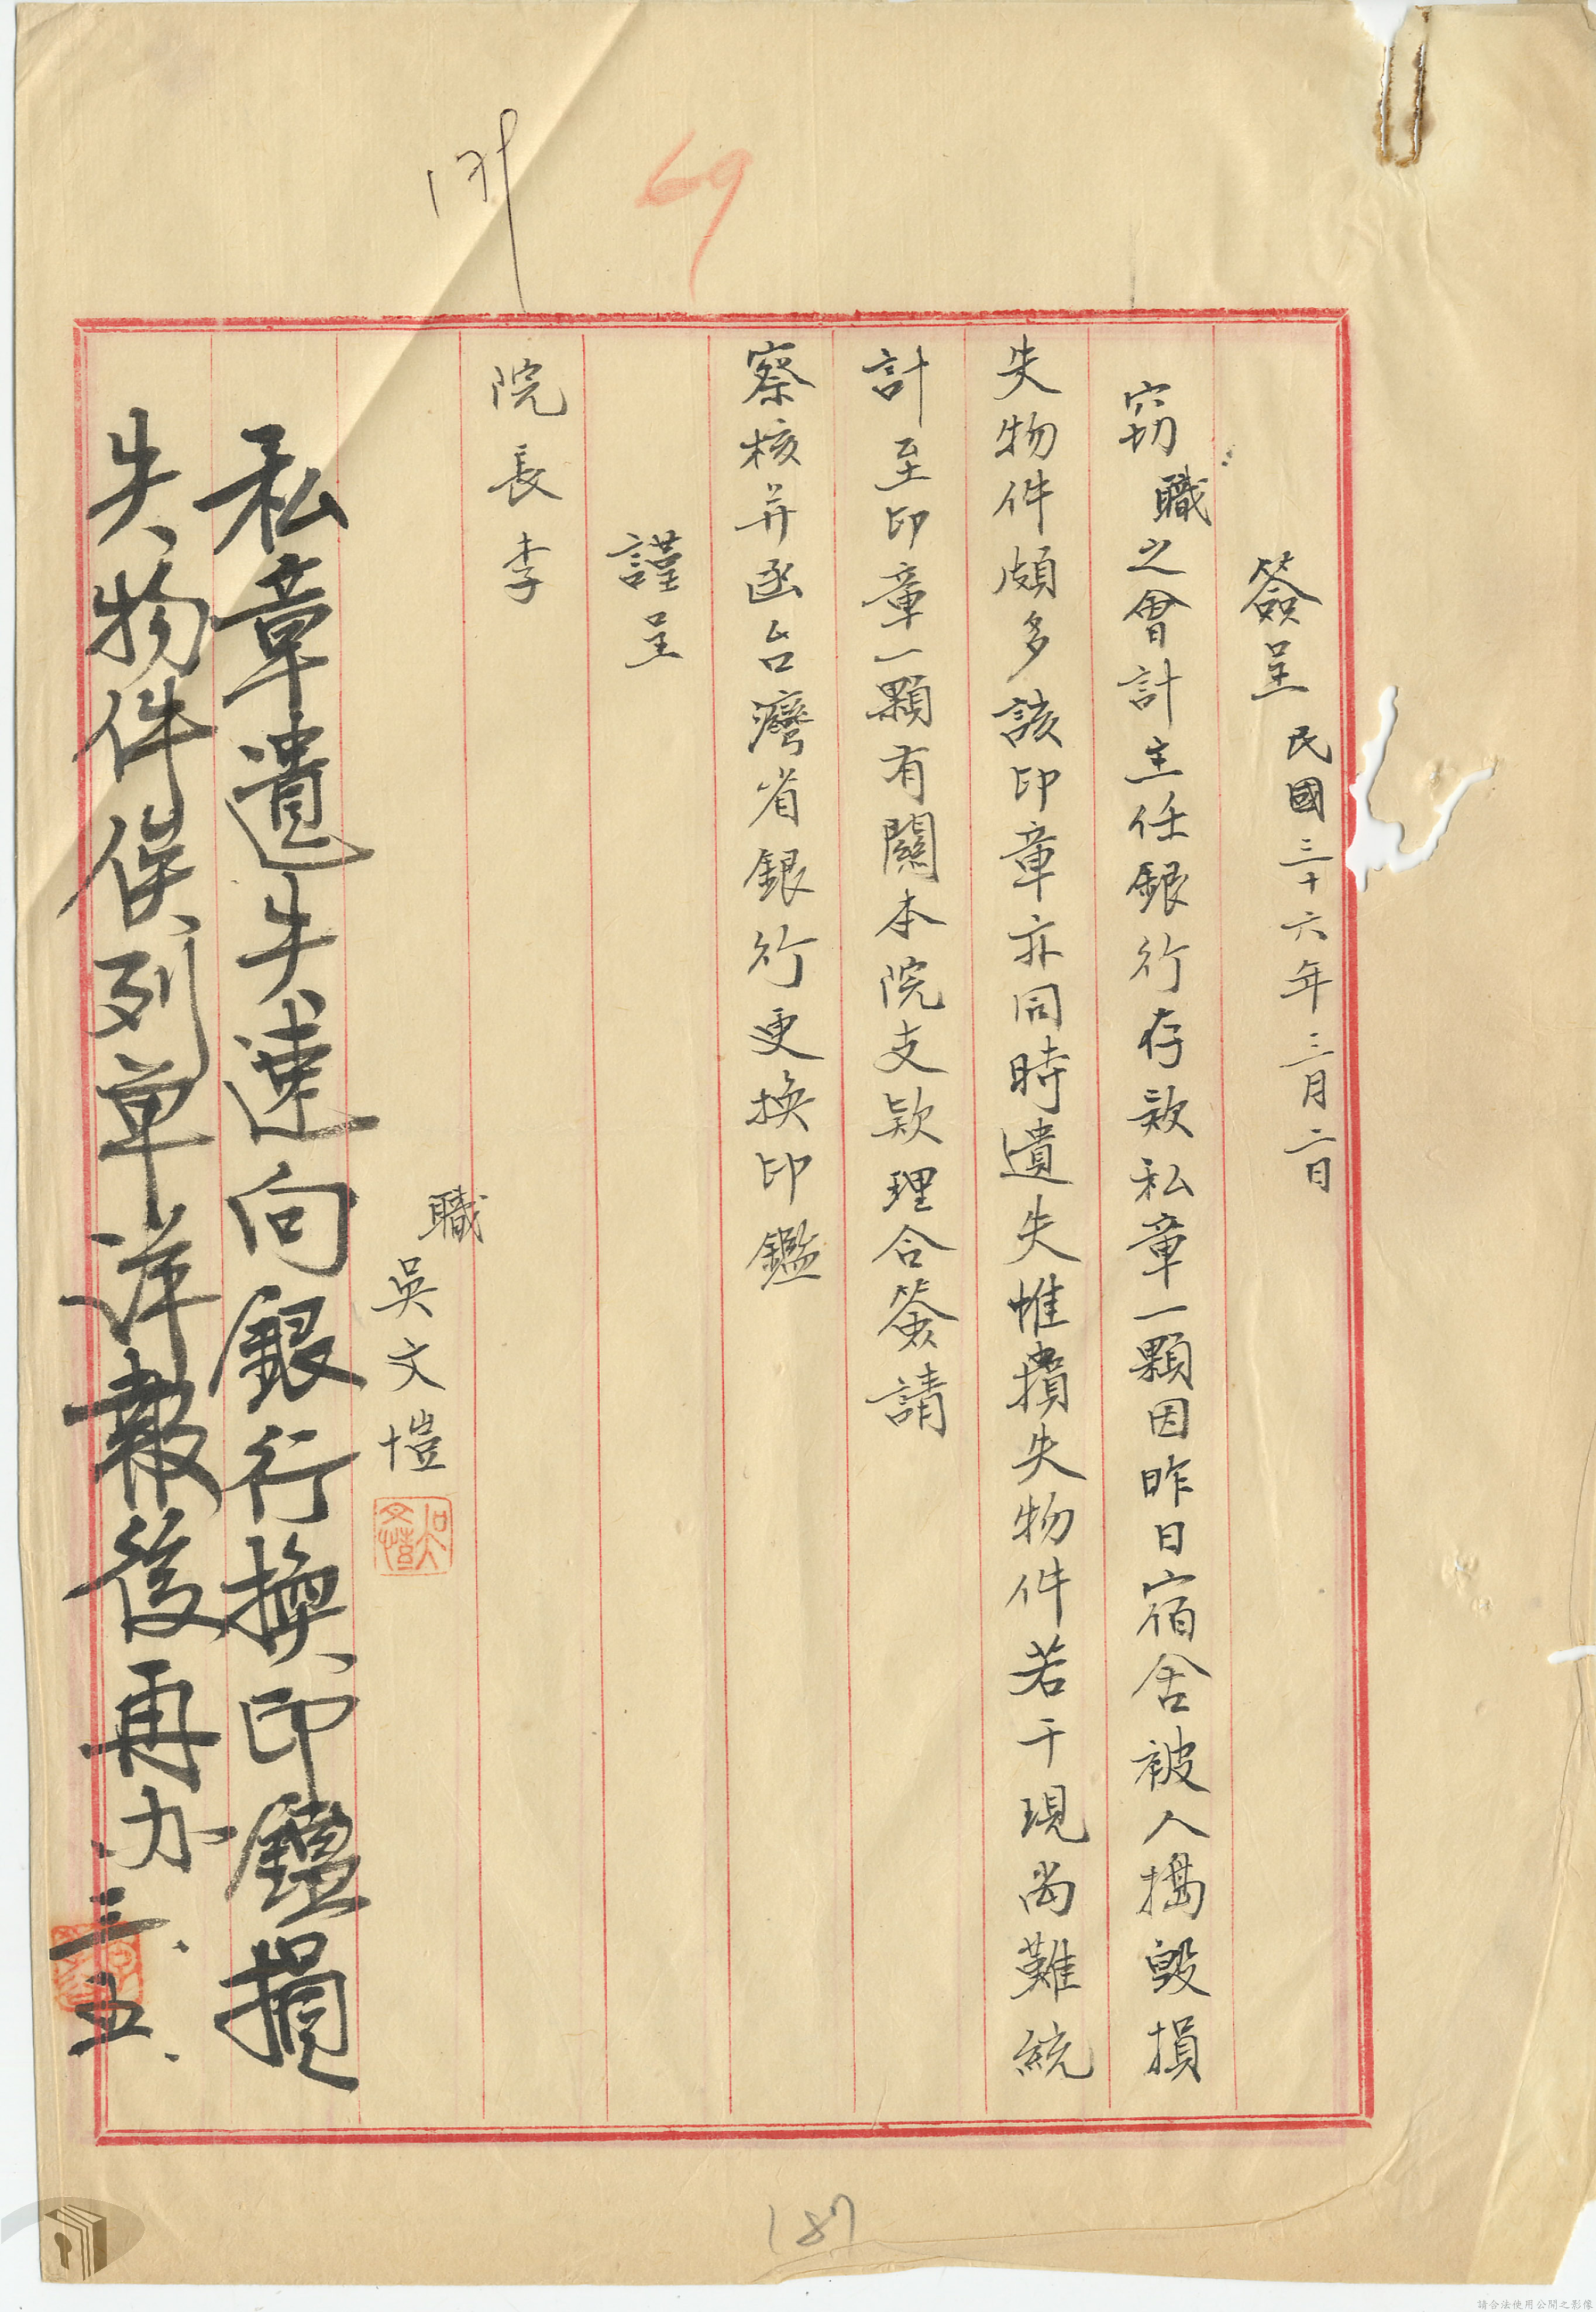 簽呈 民國三十六年三月二日
竊職之會計主任銀行存款私章一顆因昨日宿舍被人搗毀損
失物件頗多該印章亦同時遺失惟損失物件若干現尚難統
計至印章一顆有關本院支款理合簽請
察核并函台灣省銀行更換印鑑
謹呈
院長李
職吳文愷
私章遺失速向銀行換印鑑損
失物件俟列單詳報後再办 三.五.
69
187
請合法使用公開之影像